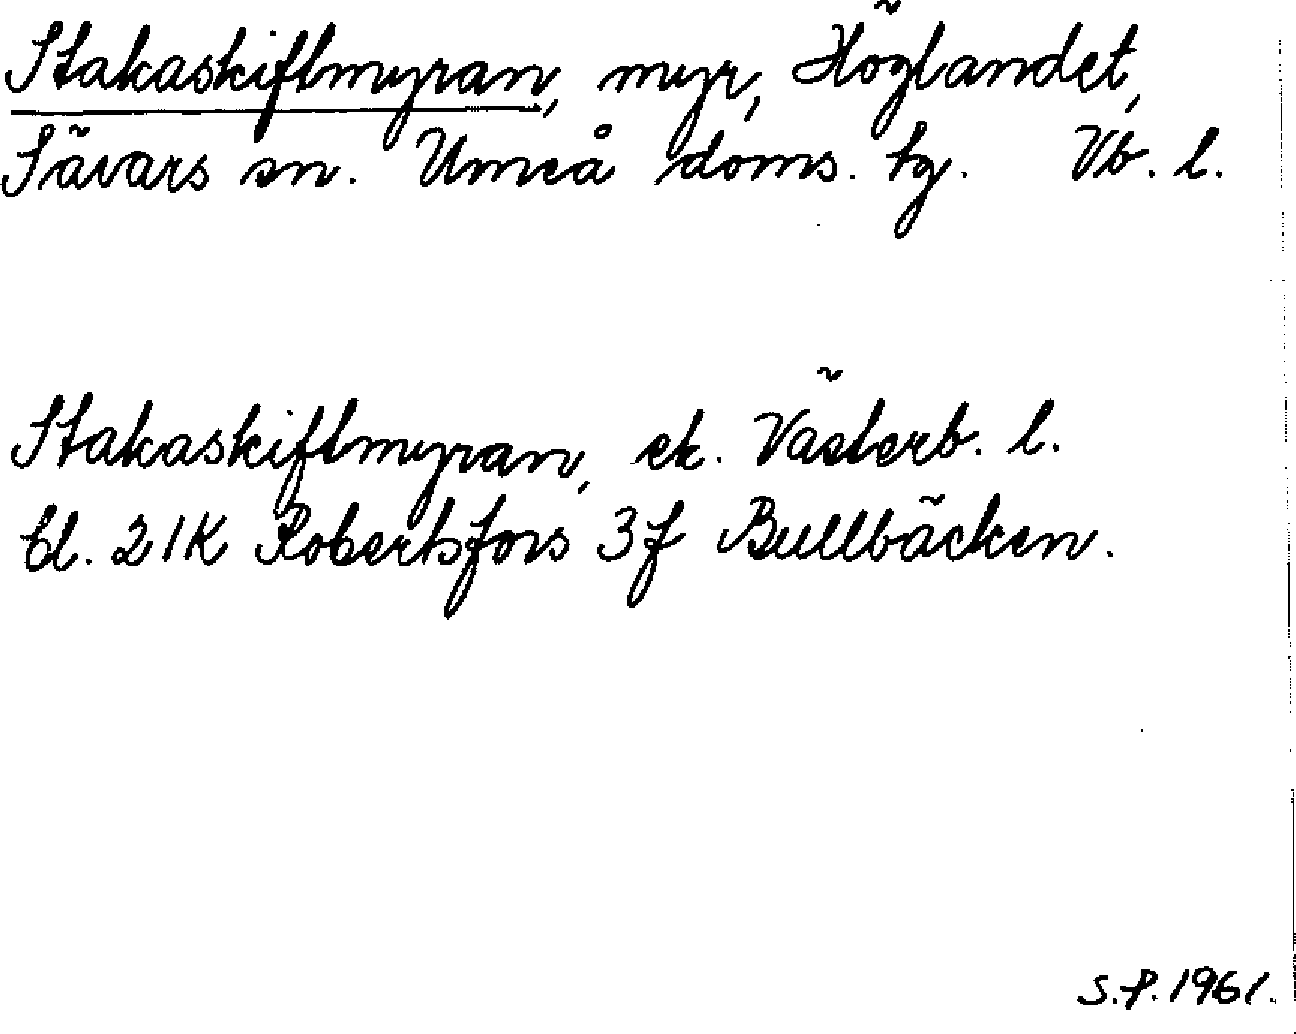 Stakaskiftmyran, myr, Höglandet,
Sävars sn. Umeå doms. tg. Vb. l.
Stakaskiftmyran, ek. Västerb. l.
bl. 21K Robertsfors 3f Bullbäcken.
S.P. 1961.